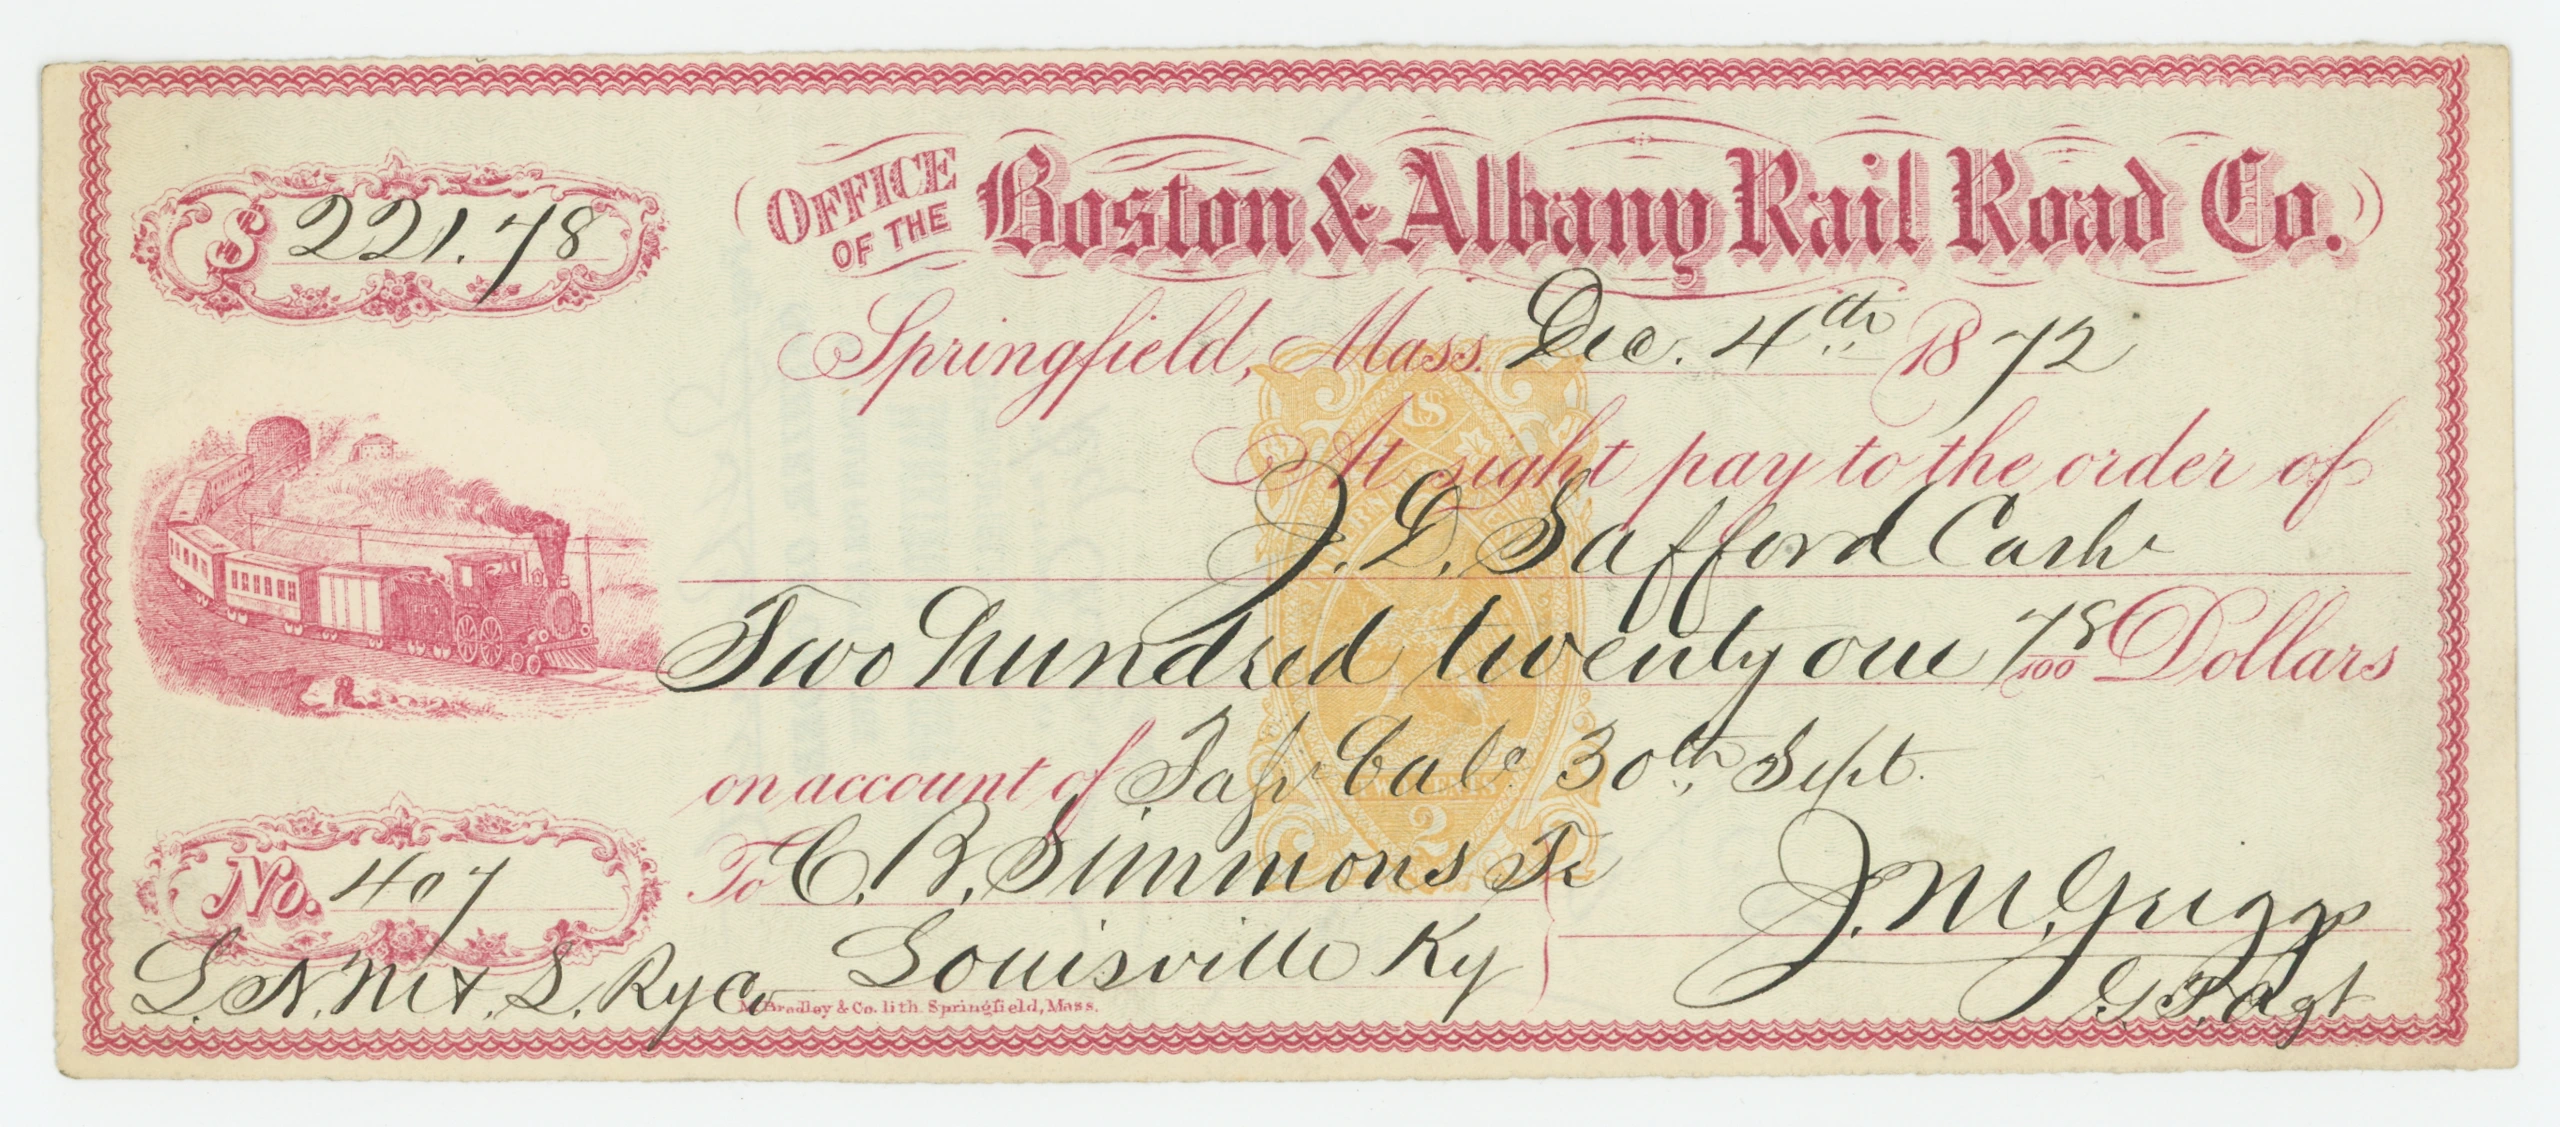 OFFICE OF THE Boston & Albany Rail Road Co.
$ 221.78
Springfield, Mass. Dec. 4th 1872
At sight pay to the order of
J. D. Safford Cash
Two hundred twenty one 78/100 Dollars
on account of Bal 30th Sept.
To C. B. Simmons Tr
Louisville Ky
No. 407
J. M. Griggs
G. T. Agt
L. N. & S. Ry Co
M. Bradley & Co. lith. Springfield, Mass.
US
2